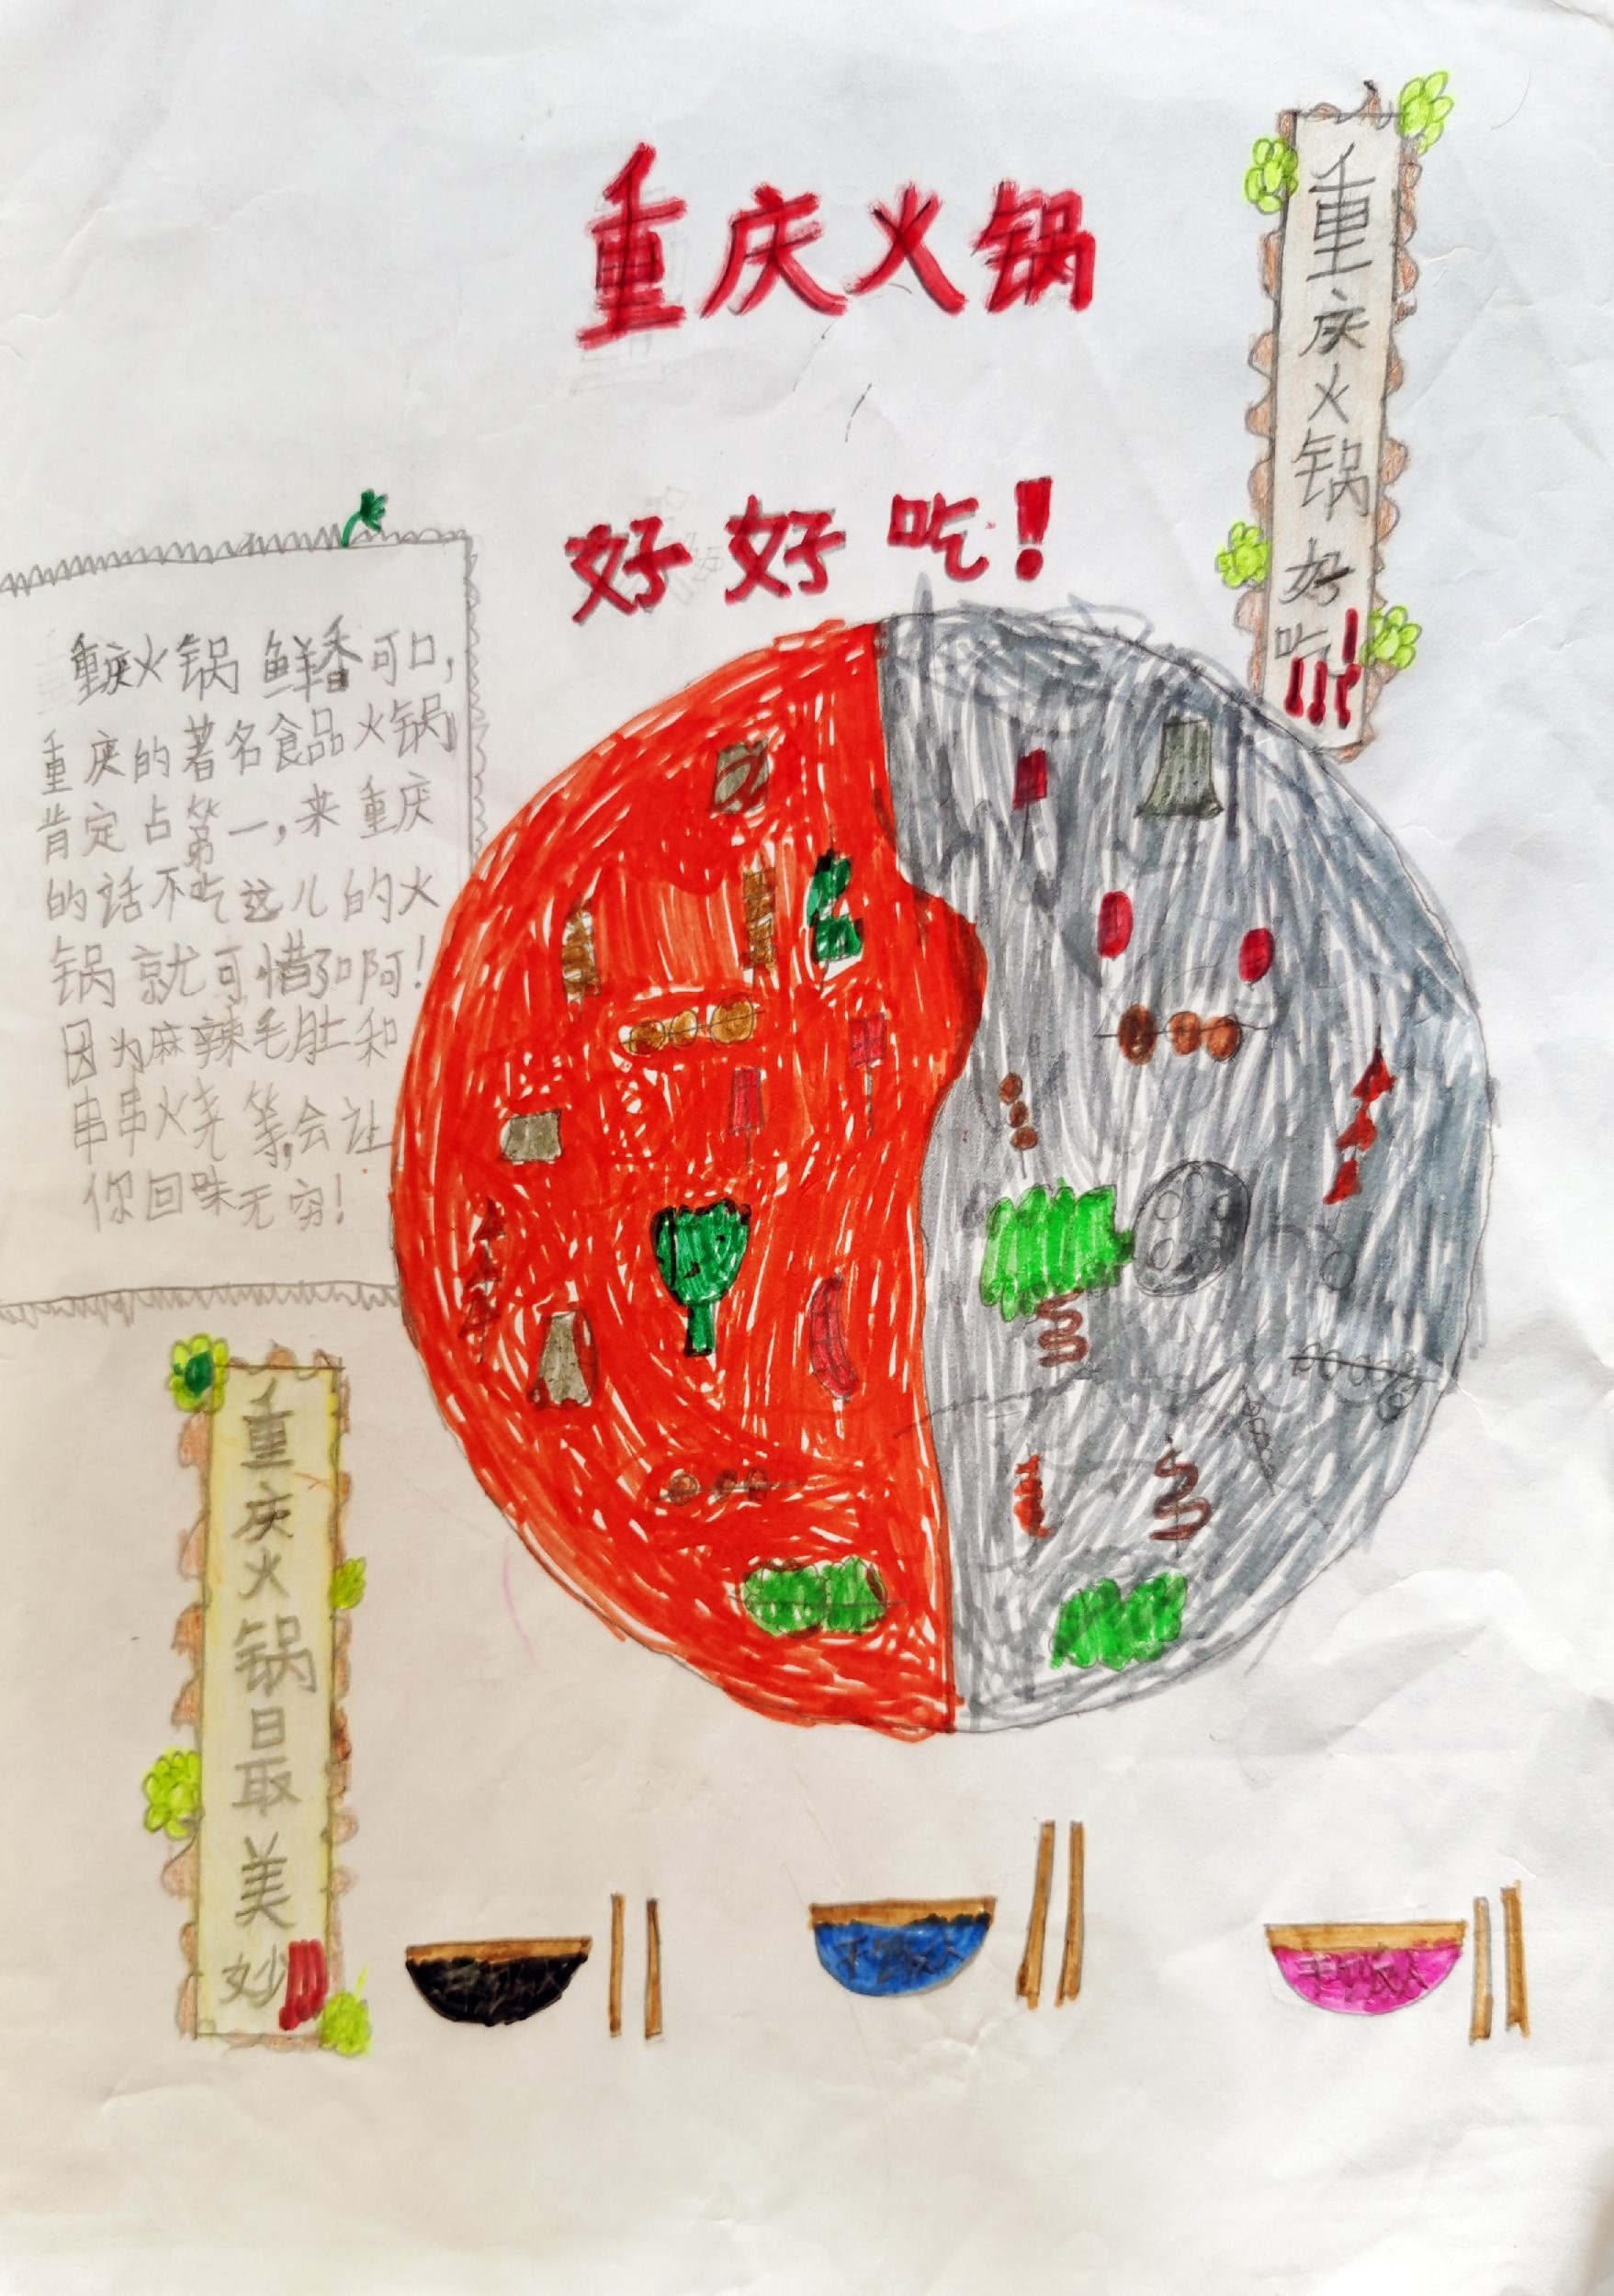 重庆火锅
好好吃！
重庆火锅好吃！！！！
重庆火锅鲜香可口，
重庆的著名食品火锅
肯定占第一，来重庆
的话不吃这儿的火
锅就可惜了啊！
因为麻辣毛肚和
串串火烧等，会让
你回味无穷！
重庆火锅最美妙！！！
干饭人
干饭人